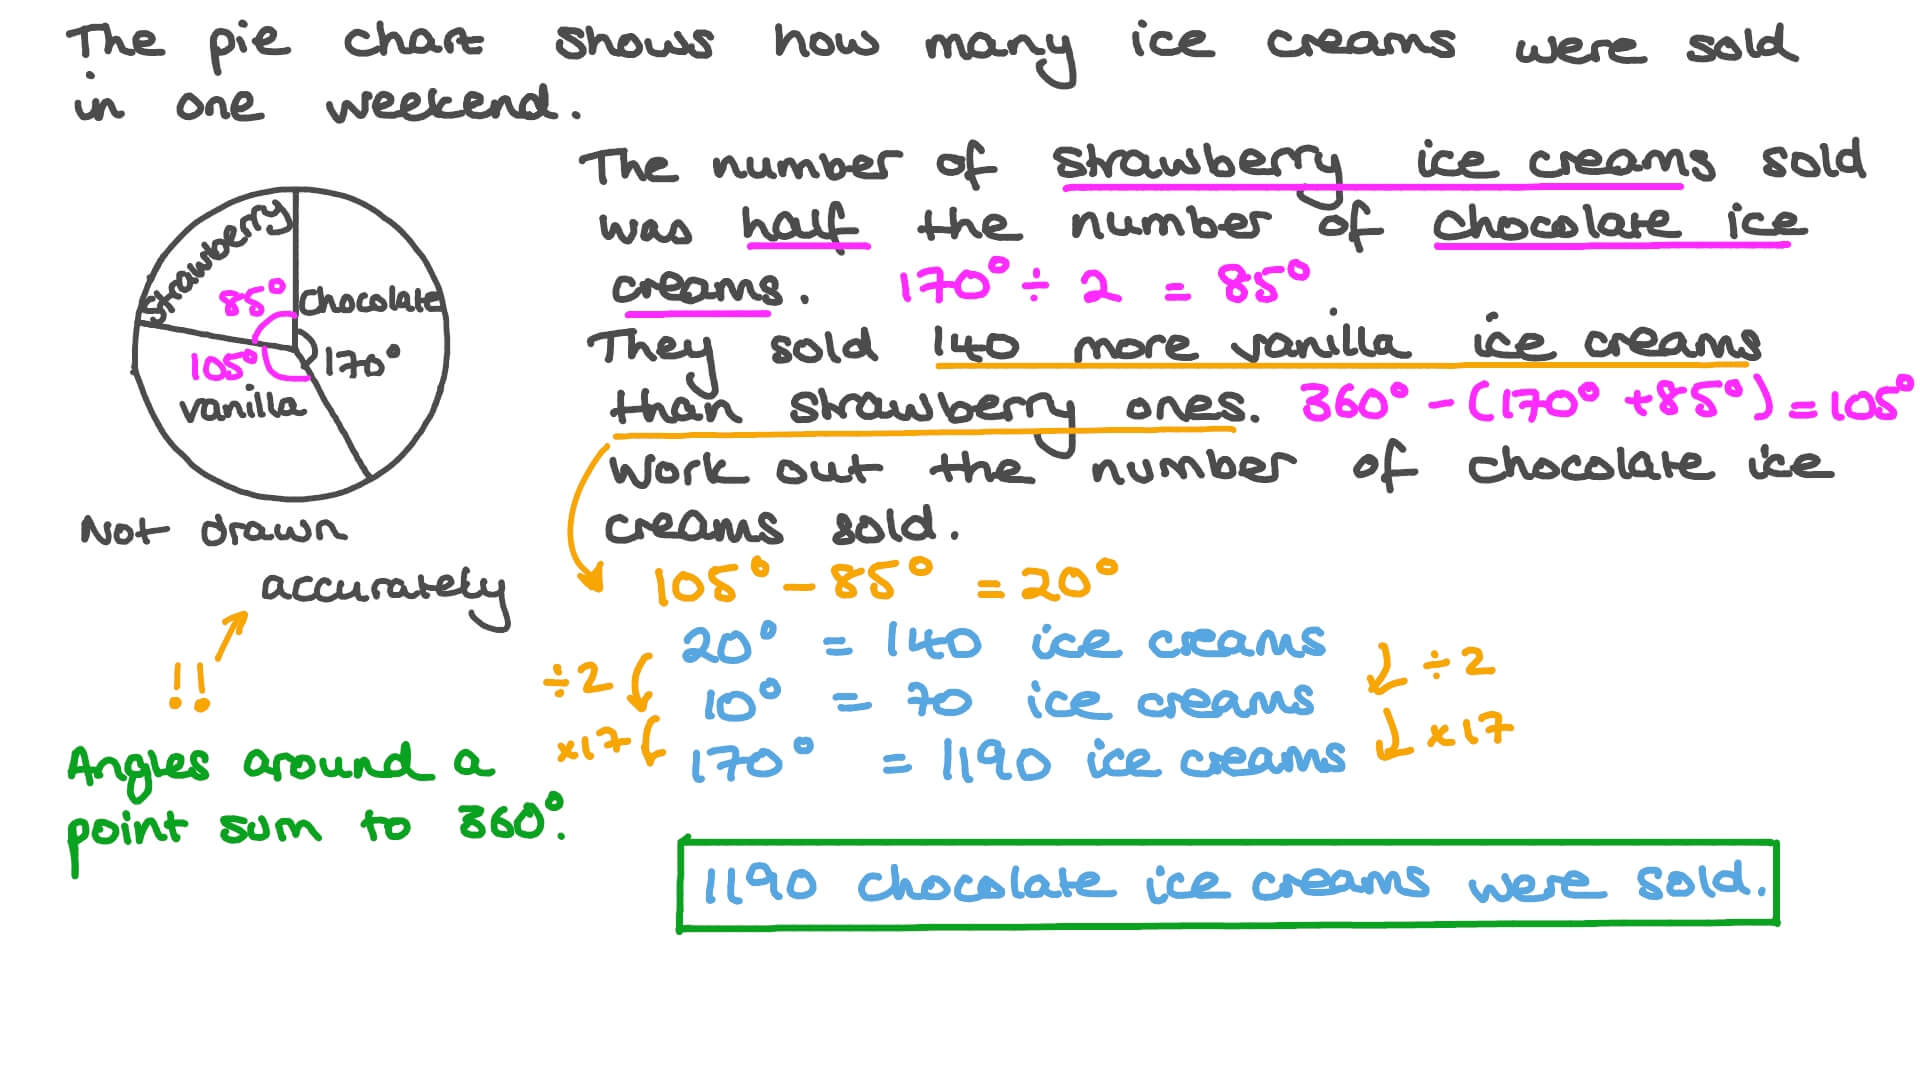 The pie chart shows how many ice creams were sold
in one weekend.
The number of strawberry ice creams sold
was half the number of chocolate ice
creams. 170° ÷ 2 = 85°
They sold 140 more vanilla ice creams
than strawberry ones. 360° - (170° + 85°) = 105°
Work out the number of chocolate ice
creams sold.
Strawberry
85°
Chocolate
105°
170°
vanilla
Not drawn
accurately
!!
Angles around a
point sum to 360°.
105° - 85° = 20°
20° = 140 ice creams
÷2
÷2
10° = 70 ice creams
×17
×17
170° = 1190 ice creams
1190 chocolate ice creams were sold.